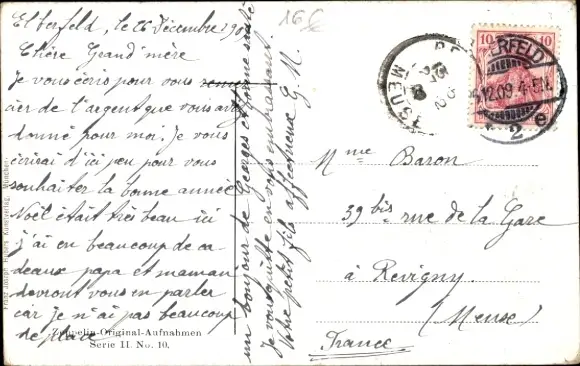 Elberfeld, le 26 Décembre 190
Chère Grand'mère
Je vous écris pour vous remer
cier de l'argent que vous avez
donné pour moi. Je vous
écrirai d'ici peu pour vous
souhaiter la bonne année
Noël était très beau ici
j'ai eu beaucoup de ca-
deaux papa et maman
devront vous en parler
car je n'ai pas beaucoup
de place
un bonjour de Georges et bonne santé
Je vous quitte en vous embrassant.
Votre petit fils affectueux G. M.
Zeppelin-Original-Aufnahmen
Serie II. No. 10.
16
10 10
ELBERFELD
12.09 4-5
2 e
MEUSE
Mme Baron
39 bis rue de la Gare
à Revigny
(Meuse)
France